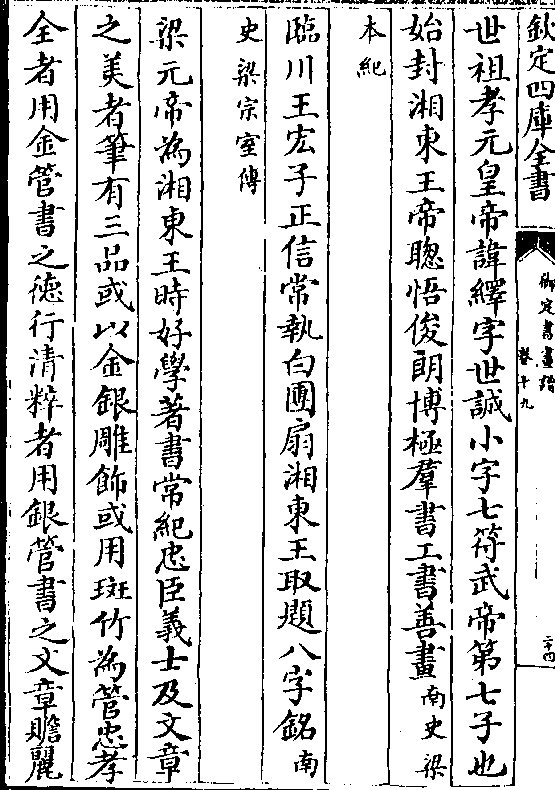 欽定四庫全書
御定書畫譜
卷十九
二十四
世祖孝元皇帝諱繹字世誠小字七符武帝第七子也
始封湘東王帝聰悟俊朗博極羣書工書善畫南史梁
本紀
臨川王宏子正信常執白團扇湘東王取題八字銘南
史梁宗室傳
梁元帝為湘東王時好學著書常紀忠臣義士及文章
之美者筆有三品或以金銀雕飾或用斑竹為管忠孝
全者用金管書之德行清粹者用銀管書之文章贍麗